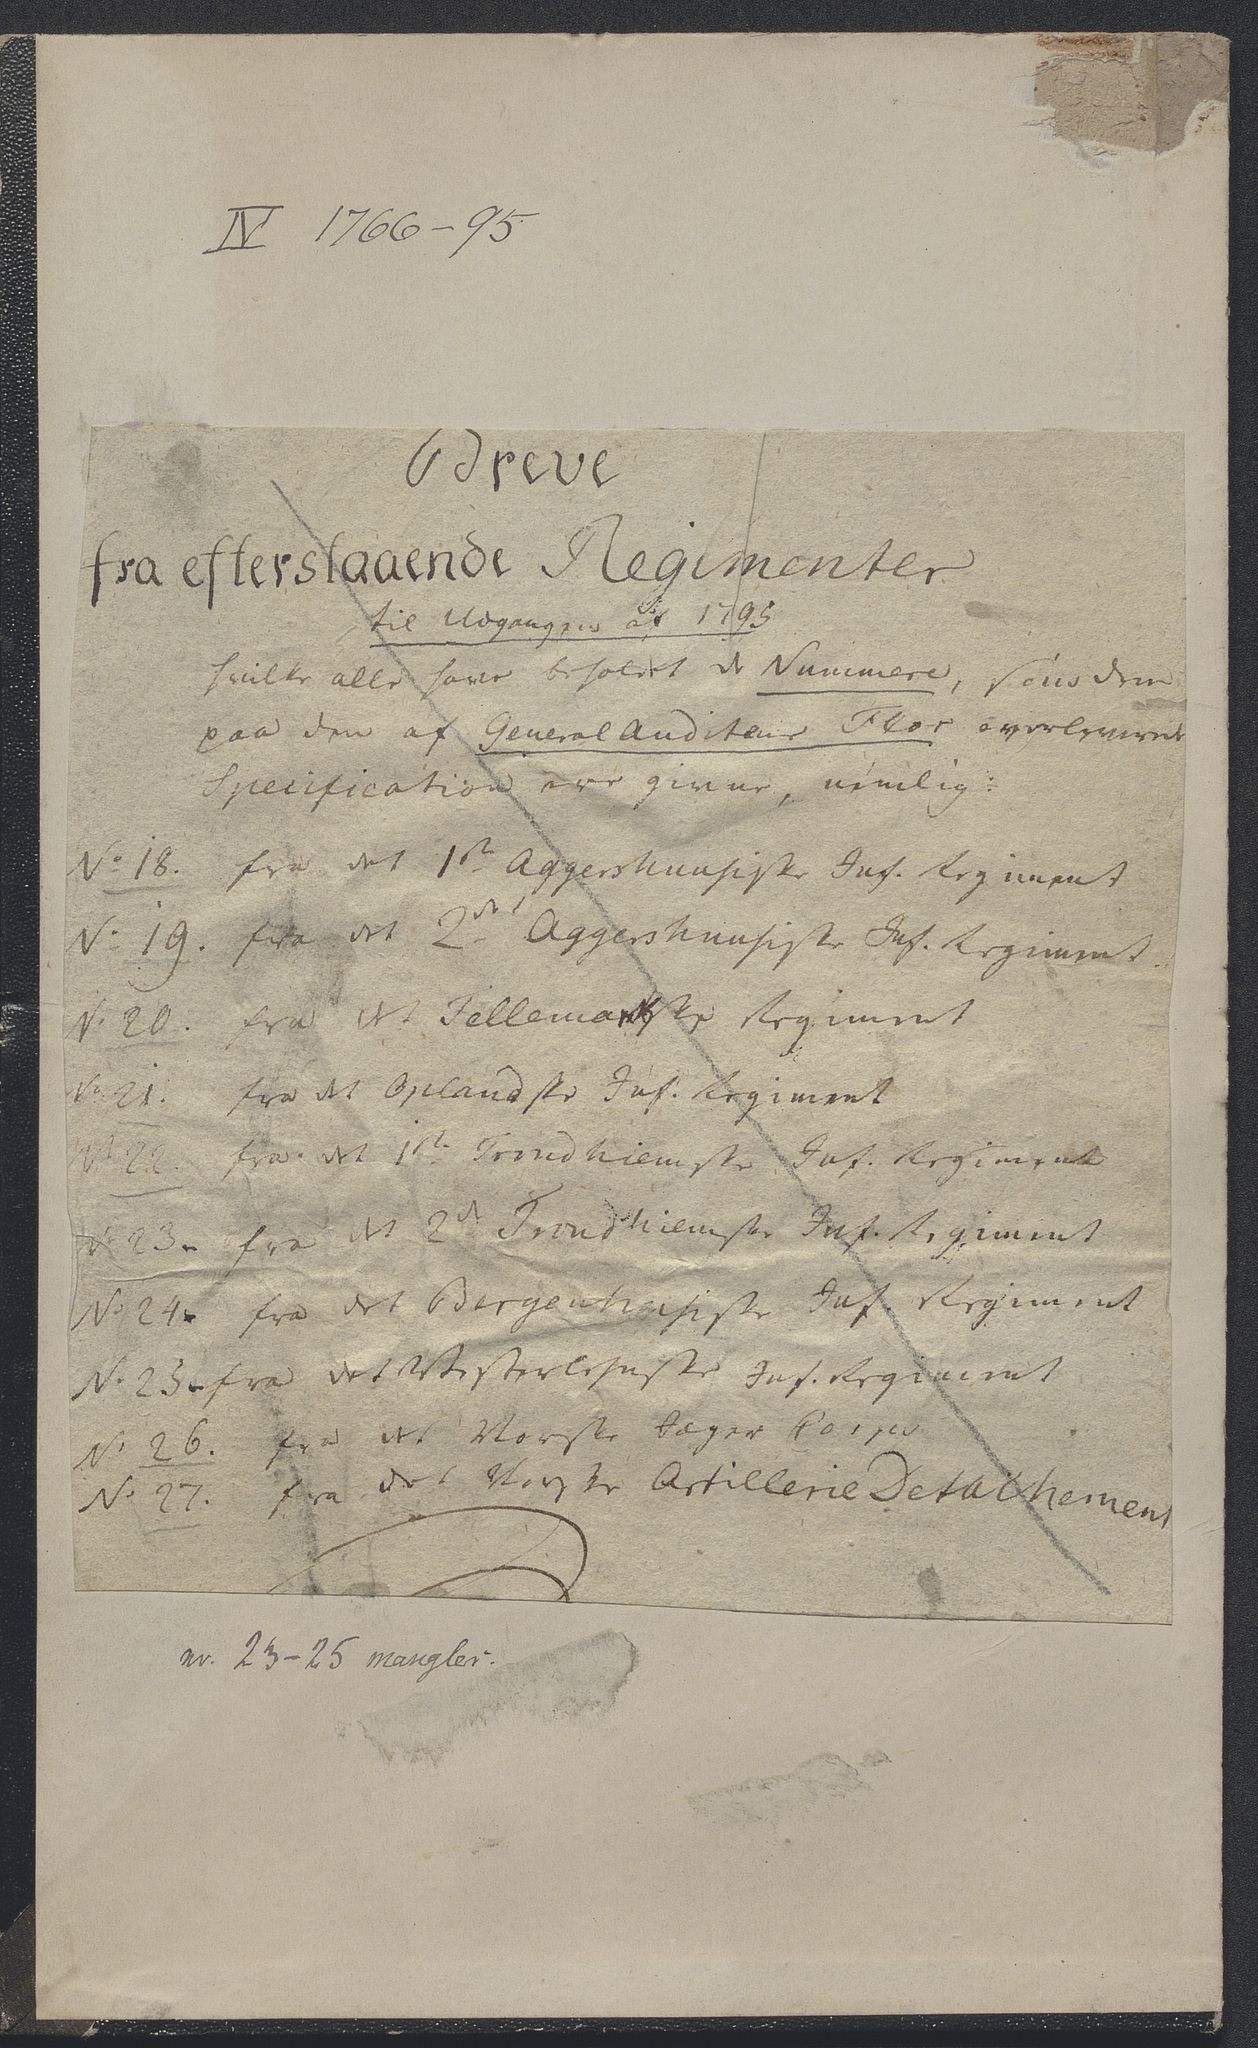 IV 1766-95
Breve
fra efterstaaende Regimenter
til Udgangen af 1795
hvilke alle have beholdt de Nummere, som dem
paa den af General Auditeur Flor overleverede
Specification ere givne, nemlig:
No 18. fra det 1ste Aggershuusiske Inf. Regiment
No 19. fra det 2det Aggershuusiske Inf. Regiment
No 20. fra det Tellemarkske Regiment
No 21. fra det Oplandske Inf. Regiment
No 22. fra det 1ste Trondhiemske Inf. Regiment
No 23. fra det 2det Trondhiemske Inf. Regiment
No 24. fra det Bergenhusiske Inf. Regiment
No 25. fra det Vesterlehnske Inf. Regiment
No 26. fra det Norske Jæger Corps
No 27. fra det Norske Artillerie Detachement
nr. 23-25 mangler.